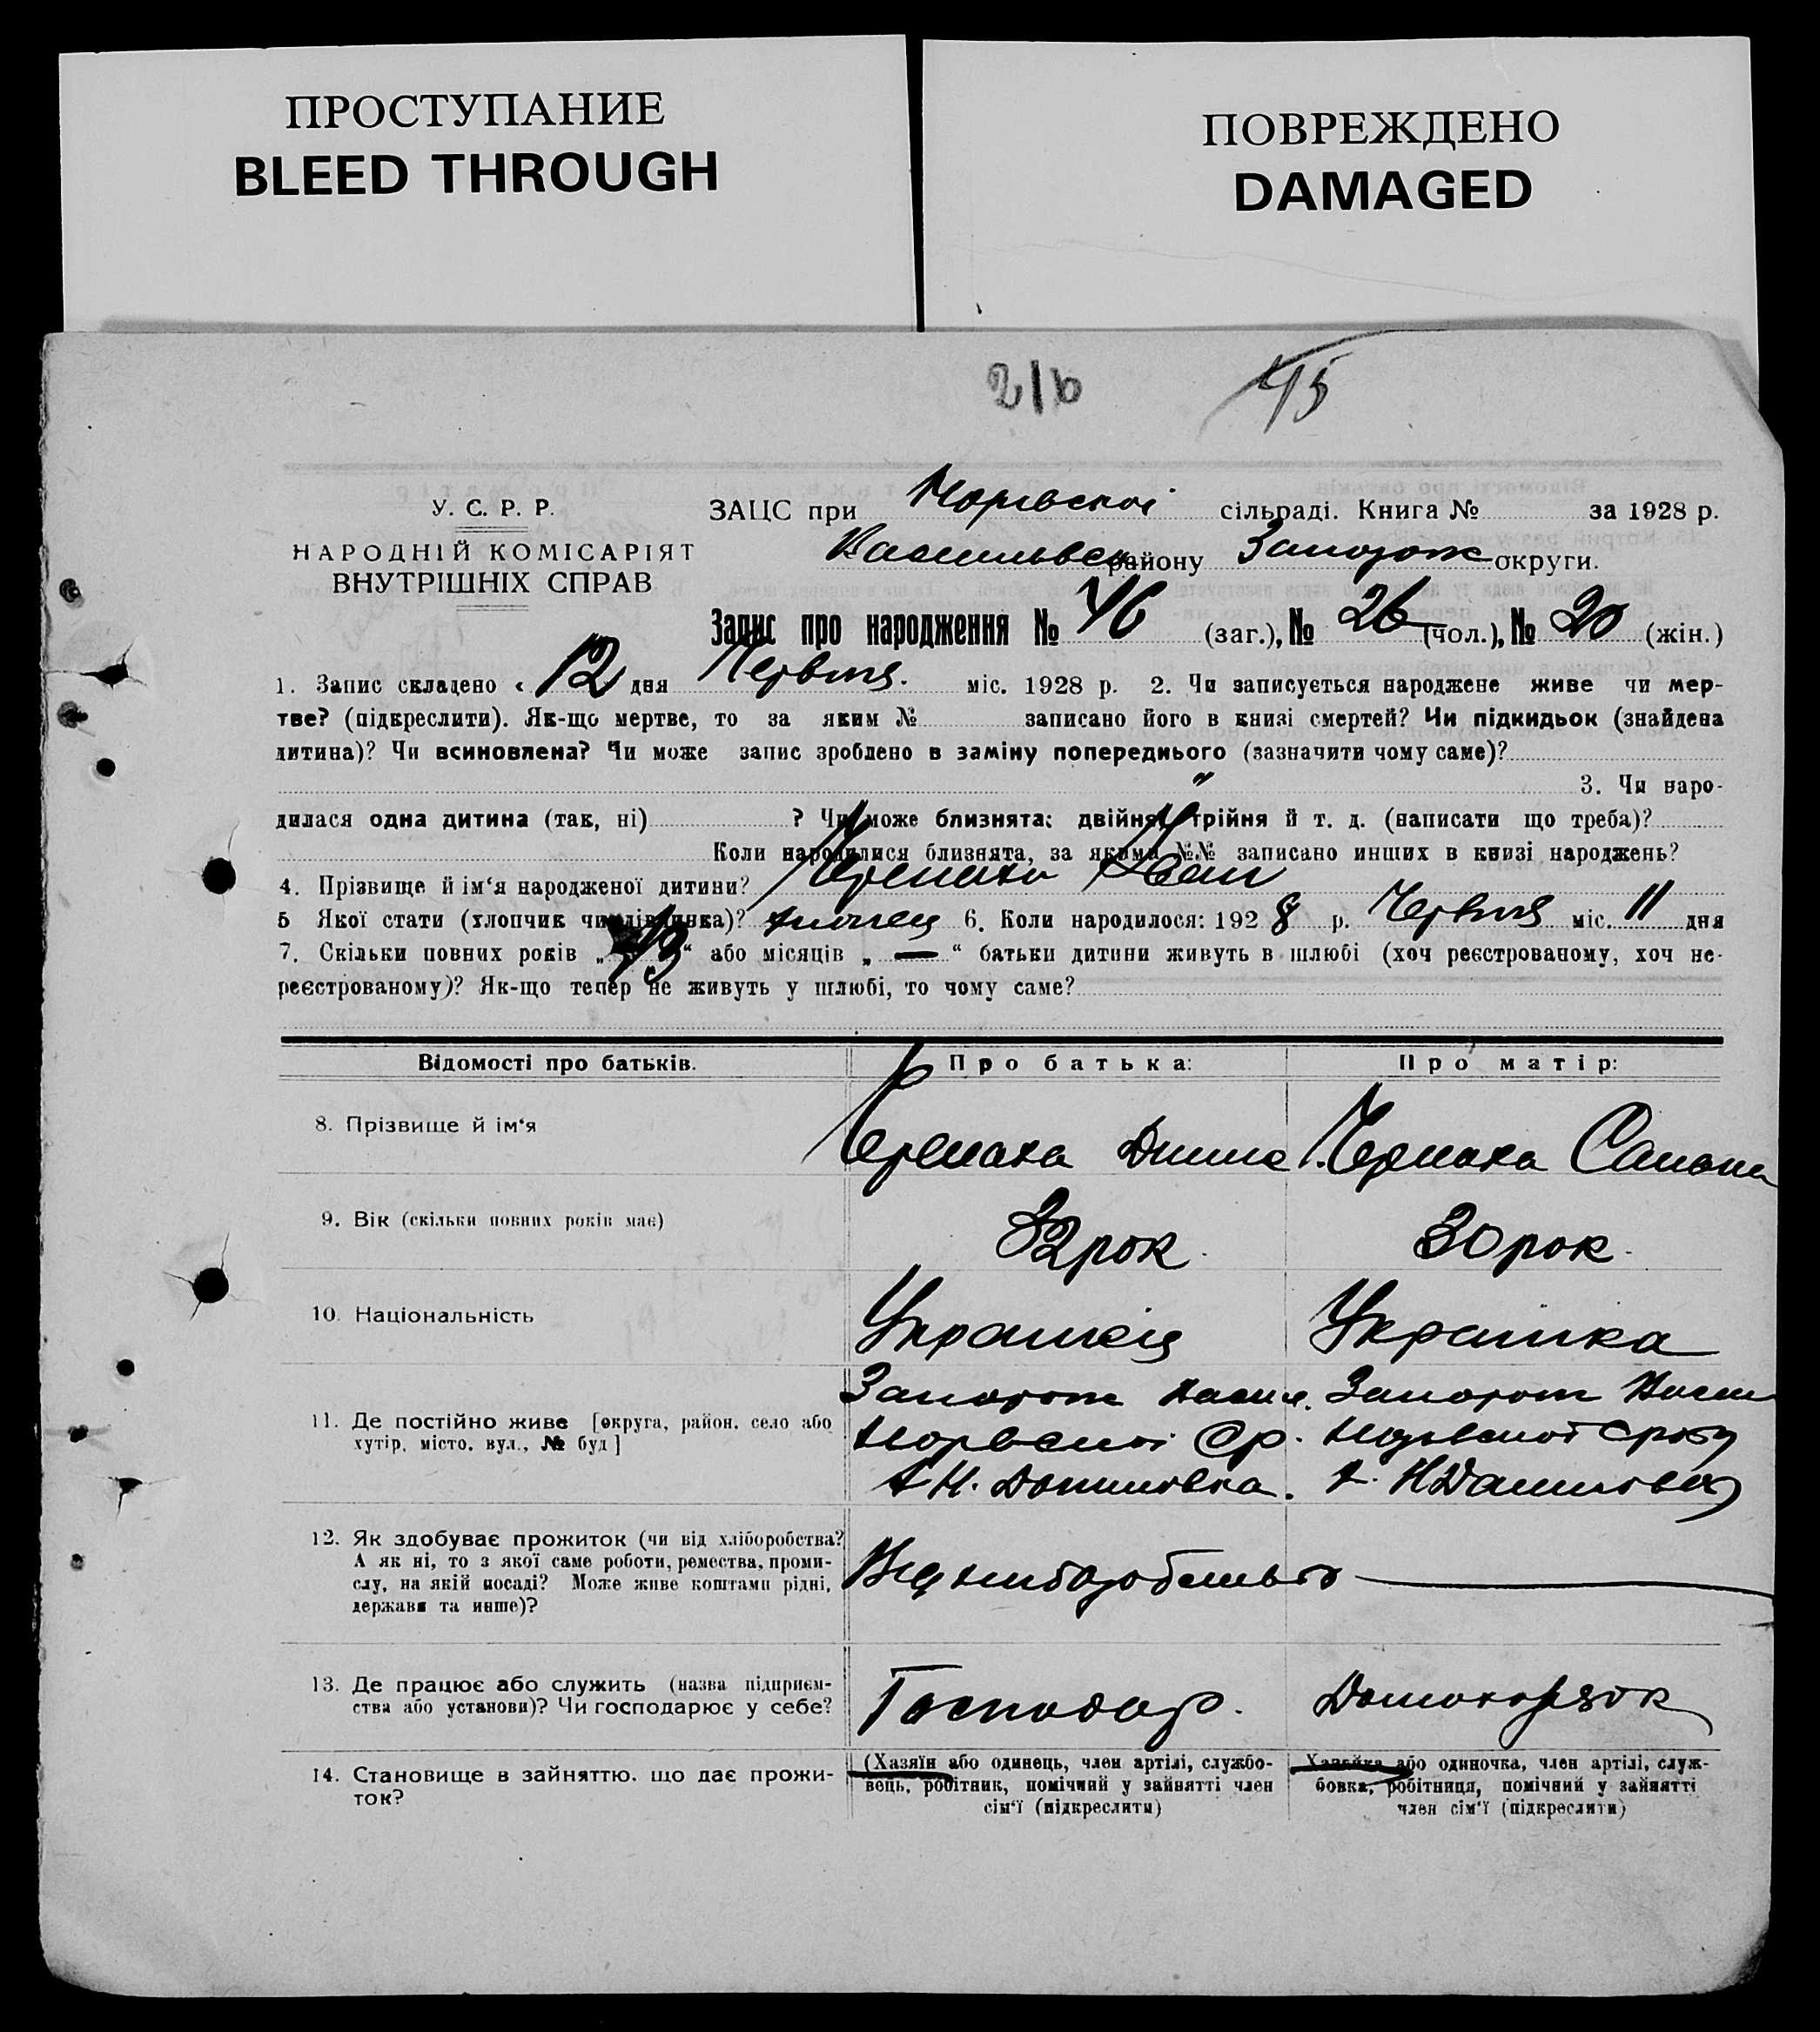 ПРОСТУПАНИЕ
BLEED THROUGH
ПОВРЕЖДЕНО
DAMAGED
45
У. С. Р. Р.
НАРОДНІЙ КОМІСАРІЯТ
ВНУТРІШНІХ СПРАВ
ЗАЦС при сільраді. Книга № за 1928 р.
району Запорож округи.
Запис про народження № 46 (заг.), № 26 (чол.), № 20 (жін.)
1. Запис складено « 12 дня Червня. міс. 1928 р. 2. Чи записується народжене живе чи мер-
тве? (підкреслити). Як-що мертве, то за яким № записано його в книзі смертей? Чи підкидьок (знайдена
дитина)? Чи всиновлена? Чи може запис зроблено в заміну попереднього (зазначити чому саме)?
3. Чи наро-
дилася одна дитина (так, ні) ? Чи може близнята: двійня, трійня й т. д. (написати що треба)?
Коли народилися близнята, за якими №№ записано инших в книзі народжень?
4. Прізвище й ім‘я народженої дитини? Іван
5 Якої стати (хлопчик чи дівчинка)? хлопец 6. Коли народилося: 1928 р. Червня міс. 11 дня
7. Скільки повних років „ 13 “ або місяців „ — “ батьки дитини живуть в шлюбі (хоч реєстрованому, хоч не-
реєстрованому)? Як-що тепер не живуть у шлюбі, то чому саме?
Відомості про батьків. Про батька: Про матір:
8. Прізвище й ім‘я
9. Вік (скільки повних років має) 32 рок 30 рок.
10. Національність Українец Українка
11. Де постійно живе [округа, район, село або
хутір, місто, вул., № буд]
Запорож Запорож
12. Як здобуває прожиток (чи від хліборобства?
А як ні, то з якої саме роботи, ремества, проми-
слу, на якій посаді? Може живе коштами рідні,
держави та инше)?
Від хліборобства
13. Де працює або служить (назва підприєм-
ства або установи)? Чи господарює у себе?
Господар.
14. Становище в зайняттю, що дає прожи-
ток?
(Хазяїн або одинець, член артілі, службо-
вець, робітник, помічний у зайнятті член
сім‘ї (підкреслити)
Хазяйка або одиночка, член артілі, служ-
бовка, робітниця, помічний у зайнятті
член сім‘ї (підкреслити)